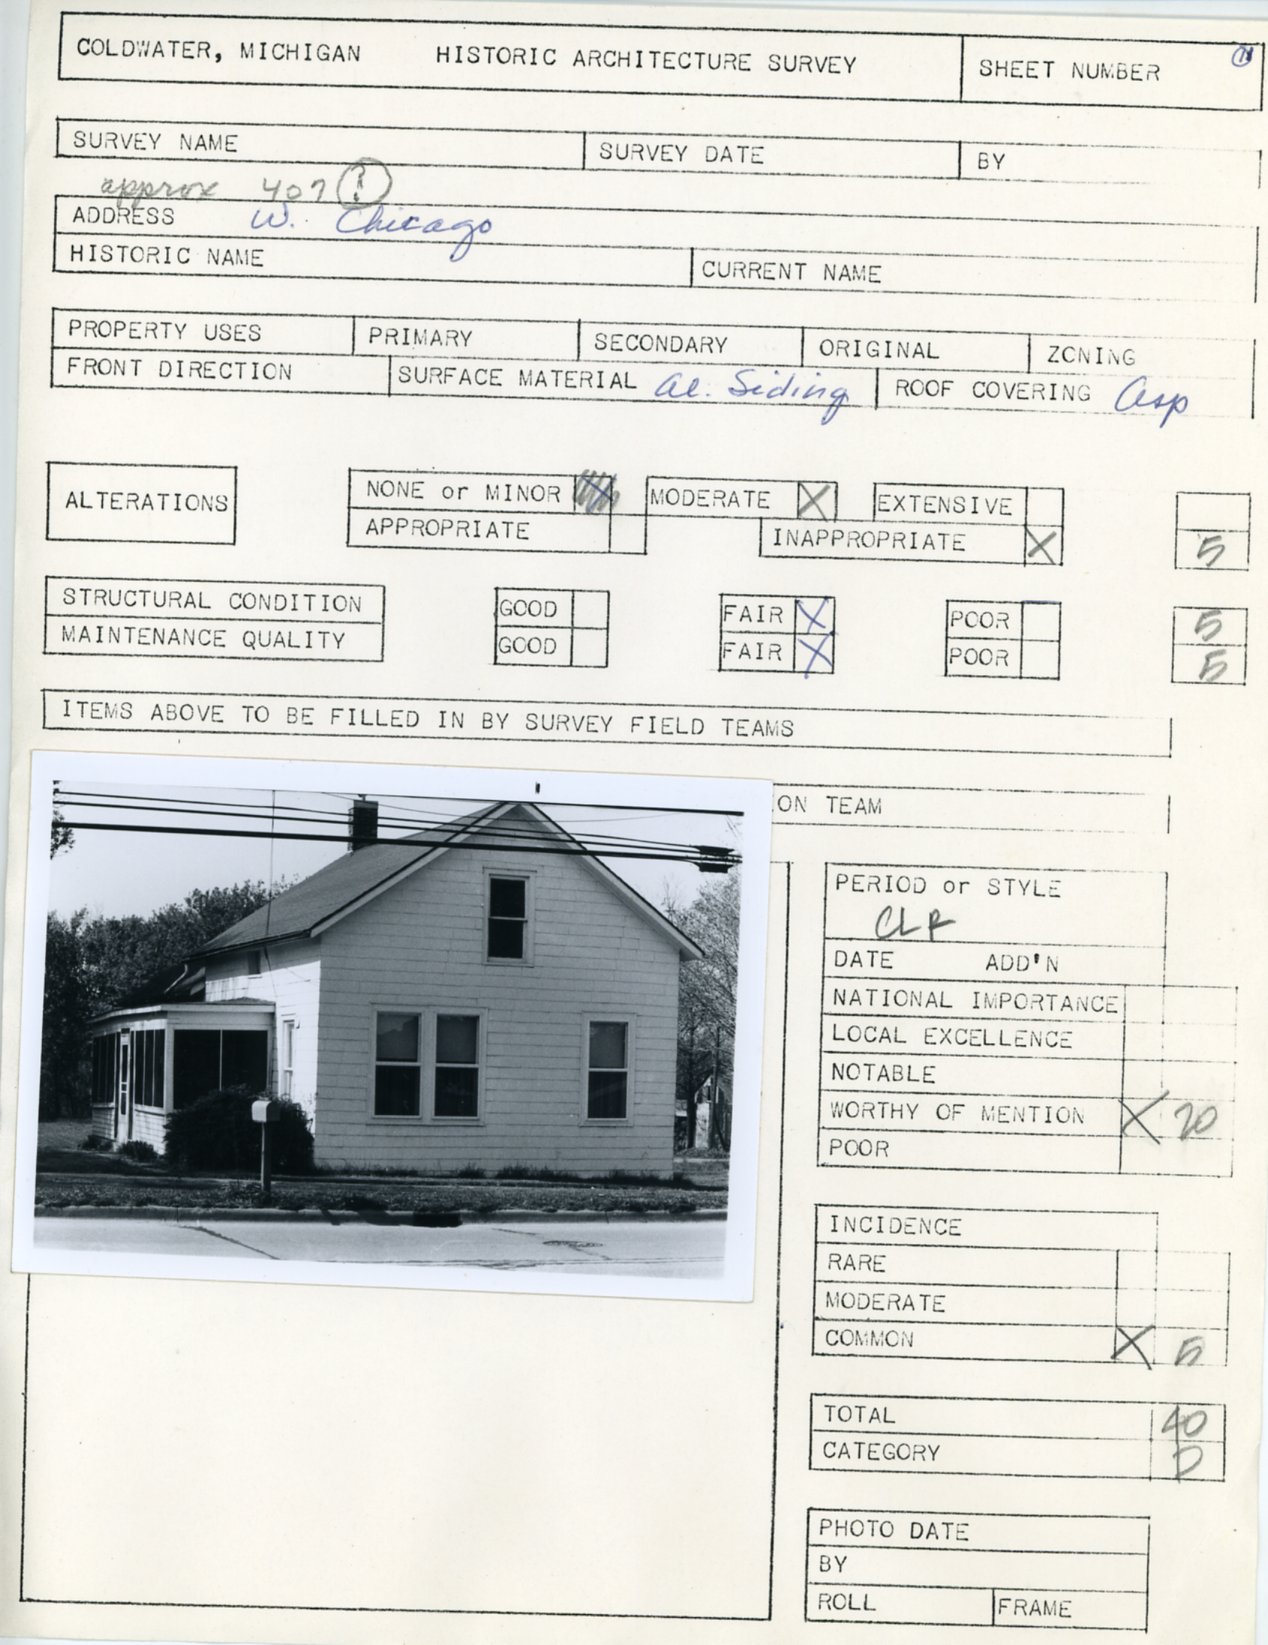 COLDWATER, MICHIGAN HISTORIC ARCHITECTURE SURVEY SHEET NUMBER
SURVEY NAME SURVEY DATE BY
approx 407 ?
ADDRESS W. Chicago
HISTORIC NAME CURRENT NAME
PROPERTY USES PRIMARY SECONDARY ORIGINAL ZONING
FRONT DIRECTION SURFACE MATERIAL Al. Siding ROOF COVERING Asp
ALTERATIONS NONE or MINOR X MODERATE X EXTENSIVE
APPROPRIATE INAPPROPRIATE X 5
STRUCTURAL CONDITION GOOD FAIR X POOR 5
MAINTENANCE QUALITY GOOD FAIR X POOR 5
ITEMS ABOVE TO BE FILLED IN BY SURVEY FIELD TEAMS
ON TEAM
PERIOD or STYLE
CLR
DATE ADD'N
NATIONAL IMPORTANCE
LOCAL EXCELLENCE
NOTABLE
WORTHY OF MENTION X 20
POOR
INCIDENCE
RARE
MODERATE
COMMON X 5
TOTAL 40
CATEGORY D
PHOTO DATE
BY
ROLL FRAME